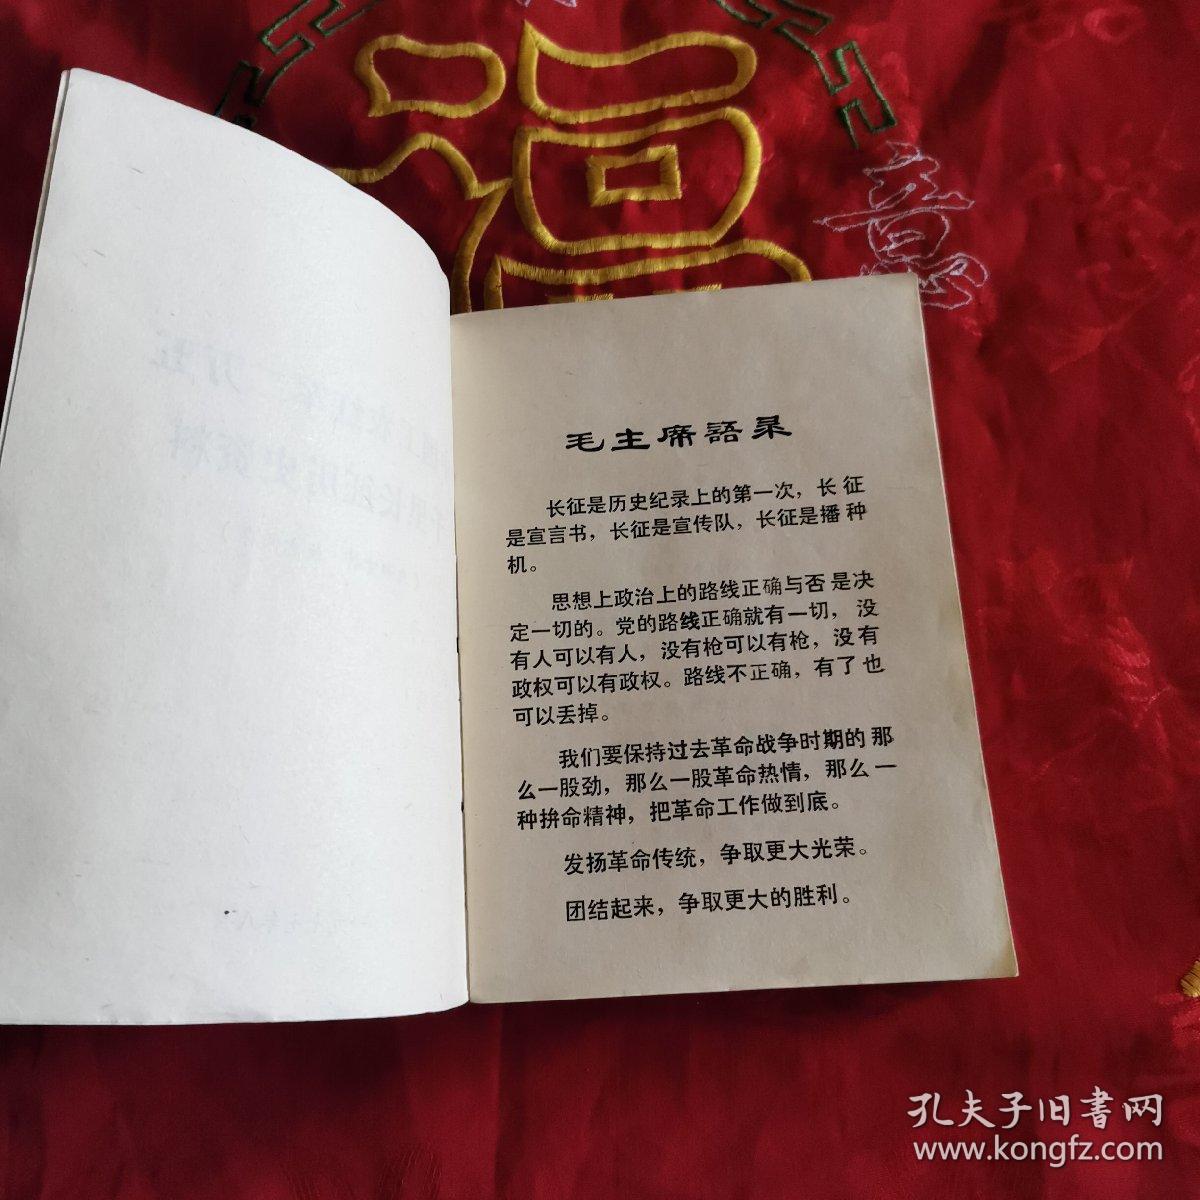 毛主席語录
长征是历史纪录上的第一次，长征
是宣言书，长征是宣传队，长征是播种
机。
思想上政治上的路线正确与否是决
定一切的。党的路线正确就有一切，没
有人可以有人，没有枪可以有枪，没有
政权可以有政权。路线不正确，有了也
可以丢掉。
我们要保持过去革命战争时期的那
么一股劲，那么一股革命热情，那么一
种拚命精神，把革命工作做到底。
发扬革命传统，争取更大光荣。
团结起来，争取更大的胜利。
意
孔夫子旧書网
www.kongfz.com